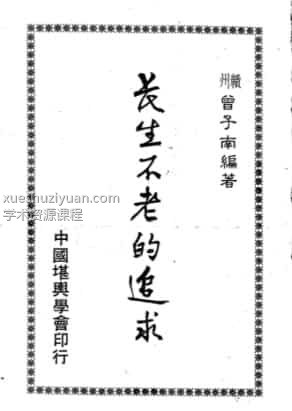 贛州 曾子南編著
長生不老的追求
中國堪輿學會印行
xueshuziyuan.com
学术资源课程